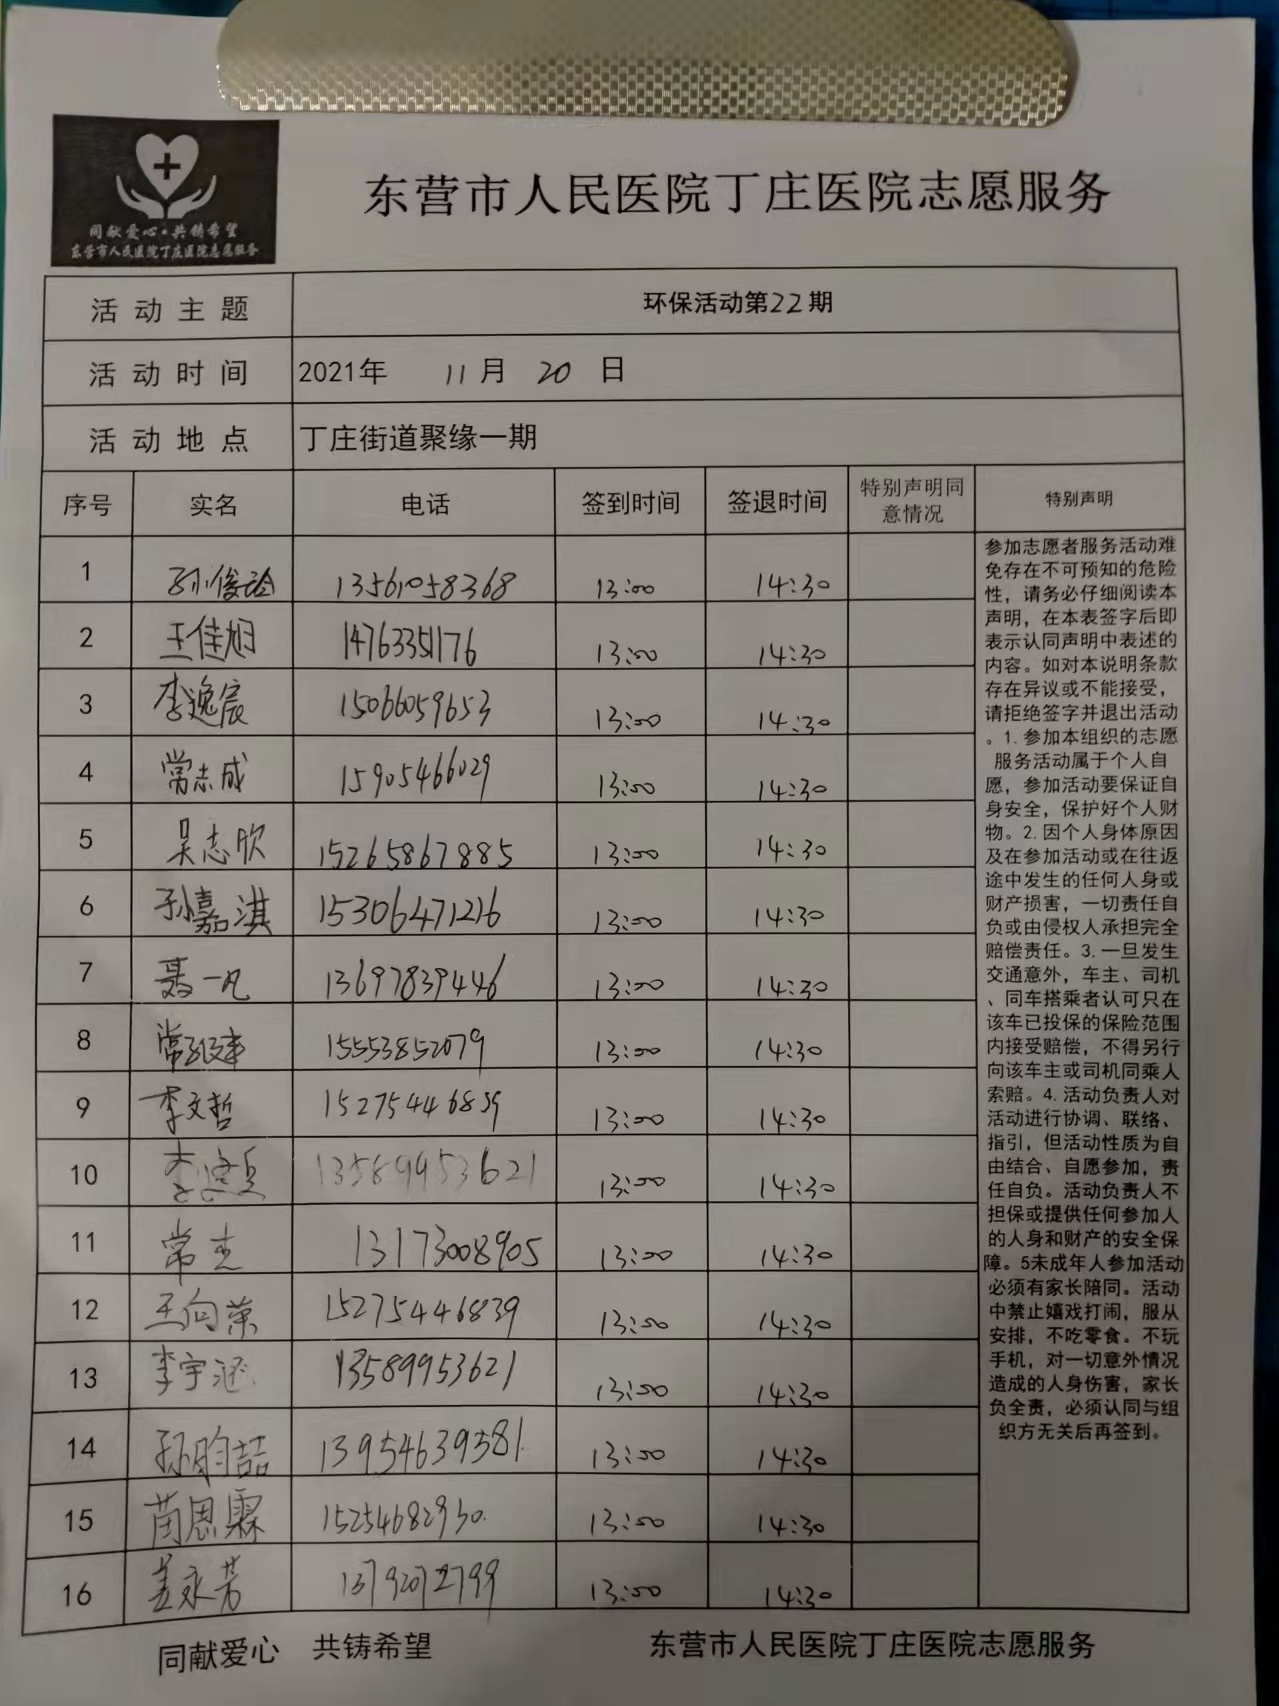 同献爱心·共铸希望
东营市人民医院丁庄医院志愿服务
东营市人民医院丁庄医院志愿服务
活动主题 环保活动第22期
活动时间 2021年 11月 20 日
活动地点 丁庄街道聚缘一期
序号 实名 电话 签到时间 签退时间 特别声明同意情况 特别声明
1 孙俊 13561058368 13:00 14:30
2 王佳旭 14763351176 13:00 14:30
3 李逸宸 15066059653 13:00 14:30
4 常志成 15905466029 13:00 14:30
5 吴志欣 15265867885 13:00 14:30
6 孙嘉淇 15306471216 13:00 14:30
7 聂一凡 13697839446 13:00 14:30
8 常 15553852079 13:00 14:30
9 李文哲 15275446839 13:00 14:30
10 李 13589953621 13:00 14:30
11 常志 13173008905 13:00 14:30
12 王向荣 15275446839 13:00 14:30
13 李宇涵 13589953621 13:00 14:30
14 孙昀喆 13954639581 13:00 14:30
15 苗思霖 15254682930 13:00 14:30
16 姜永芳 13792072799 13:00 14:30
参加志愿者服务活动难
免存在不可预知的危险
性，请务必仔细阅读本
声明，在本表签字后即
表示认同声明中表述的
内容。如对本说明条款
存在异议或不能接受，
请拒绝签字并退出活动
。1.参加本组织的志愿
服务活动属于个人自
愿，参加活动要保证自
身安全，保护好个人财
物。2.因个人身体原因
及在参加活动或在往返
途中发生的任何人身或
财产损害，一切责任自
负或由侵权人承担完全
赔偿责任。3.一旦发生
交通意外，车主、司机
、同车搭乘者认可只在
该车已投保的保险范围
内接受赔偿，不得另行
向该车主或司机同乘人
索赔。4.活动负责人对
活动进行协调、联络、
指引，但活动性质为自
由结合、自愿参加，责
任自负。活动负责人不
担保或提供任何参加人
的人身和财产的安全保
障。5未成年人参加活动
必须有家长陪同。活动
中禁止嬉戏打闹，服从
安排，不吃零食。不玩
手机，对一切意外情况
造成的人身伤害，家长
负全责，必须认同与组
织方无关后再签到。
同献爱心 共铸希望 东营市人民医院丁庄医院志愿服务